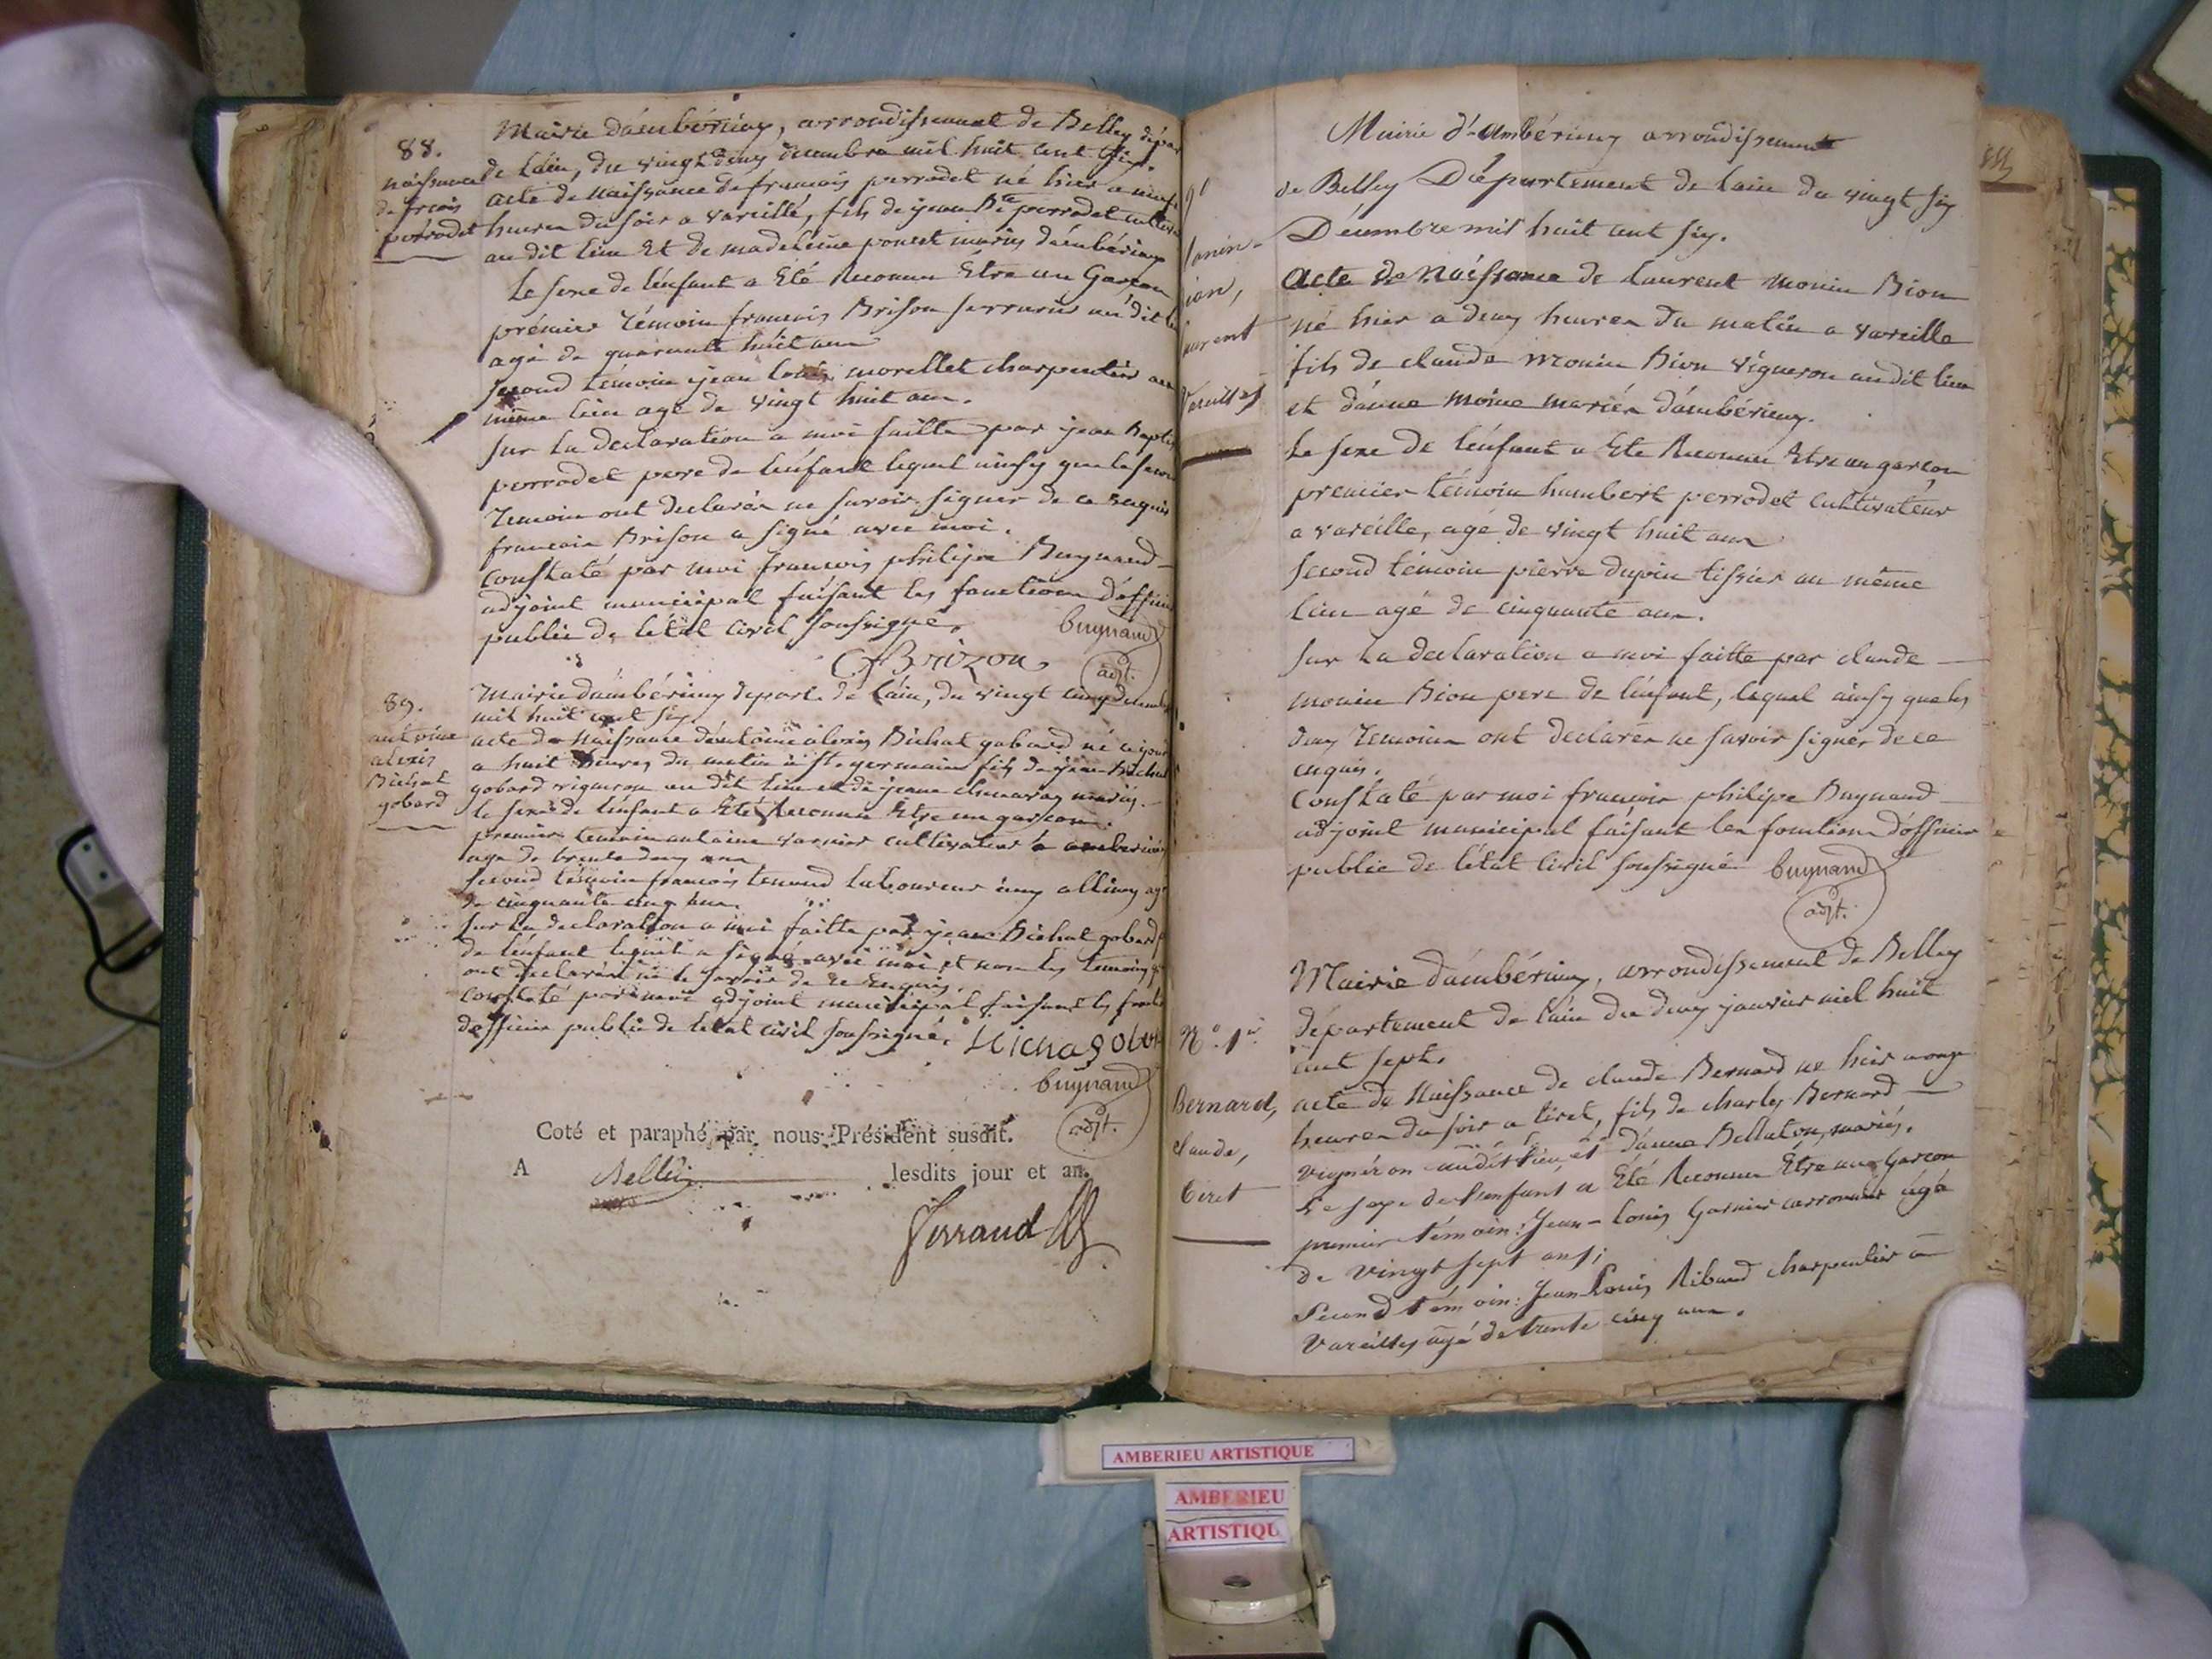 88.
naissance
de frçois
perrodet
Mairie d'ambérieux, arrondissement de Belley dépar
de l'ain, du vingt deux décembre mil huit cent six.
acte de naissance de francois perrodet né hier a neuf
heures du soir a vareille, fils de jean Bte perrodet cultiv
au dit lieu Et de madeleine poncet mariés d'ambérieux
Le sexe de l'enfant a Eté Reconnu Etre un Garçon
prémier témoin francois Brison serrurier au dit lieu
agé de quarante huit ans
second témoin jean louis morellet charpentier au
même lieu agé de vingt huit ans.
sur la declaration a moi faitte par jean Baptis
perrodet pere de l'enfant lequel ainsy que le second
temoin ont declarés ne savoir signer de ce Requis
francois Brison a signé avec moi.
Constaté par moi francois philipe Buynand
adjoint municipal faisant les fonctions d'officier
public de l'état civil soussigné.
buynand
adjt.
Brizon
89.
antoine
alexis
Bichat
gobard
Mairie d'ambérieux depart. de l'ain, du vingt cinq decemb
mil huit cent six
acte de Naissance d'antoine alexis Bichat gobard né ce jour
a huit heures du matin a st. germain fils de jean Bichat
gobard vigneron au dit lieu et de jeanne mariés.
le sexe de l'enfant a Eté Reconnu Etre un garçon.
premier temoin antoine varnier cultivateur a amberieux
agé de trente deux ans
second témoin francois tenand laboureur aux allimes agé
de cinquante cinq ans.
sur la declaration a moi faitte par jean Bichat gobard
de l'enfant lequel a signé avec moi et non les temoins
ont declarés ne le savoir de ce Enquis.
Constaté par moi adjoint municipal faisant les foncti
d'officier public de l'état civil soussigné.
buynand
adjt.
Coté et paraphé par nous Président susdit.
A Belley lesdits jour et an.
Ferrand
Monin-
Bion,
Laurent
Vareilles
Mairie d'Ambérieux arrondissement
de Belley Département de l'ain du vingt six
Décembre mil huit cent six.
Acte de Naissance de Laurent Monin Bion
né hier a deux heures du matin a vareille
fils de claude Monin Bion vigneron audit lieu
et d'anne moine mariés d'ambérieux.
Le sexe de l'enfant a Eté Reconnu Etre un garçon
premier témoin humbert perrodet cultivateur
a vareille, agé de vingt huit ans
second témoin pierre dupin tissier au même
lieu agé de cinquante ans.
sur la declaration a moi faitte par claude
monin Bion pere de l'enfant, lequel ainsy que les
deux temoins ont declarés ne savoir signer de ce
enquis.
Constaté par moi francois philipe Buynand
adjoint municipal faisant les fonctions d'officier
public de l'état civil soussigné
buynand
adjt.
No. 1er
Bernard,
Claude,
tiret
Mairie d'ambérieux, arrondissement de Belley
département de l'ain du deux janvier mil huit
cent sept.
acte de Naissance de claude Bernard né hier a onze
heures du soir a tiret, fils de charles Bernard
vignéron audit lieu, et d'anne Bellaton, mariés.
Le sexe de l'enfant a Eté Reconnu Etre un Garçon
premier témoin: Jean-Louis Garnier agé
de vingt sept ans;
Second témoin: Jean Louis Ribaud charpentier à
Vareilles agé de trente cinq ans.
AMBERIEU ARTISTIQUE
AMBERIEU
ARTISTIQU